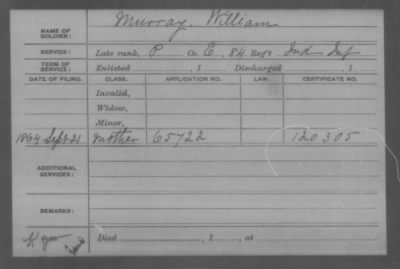 NAME OF SOLDIER: Murray, William
SERVICE: Late rank, P Co. E, 84 Reg't Ind Inf
TERM OF SERVICE: Enlisted , 1 Discharged , 1
DATE OF FILING. CLASS. APPLICATION NO. LAW. CERTIFICATE NO.
Invalid,
Widow,
Minor,
1864 Sept 21 Mother 65722 120305
ADDITIONAL SERVICES:
REMARKS:
Died , 1 , at